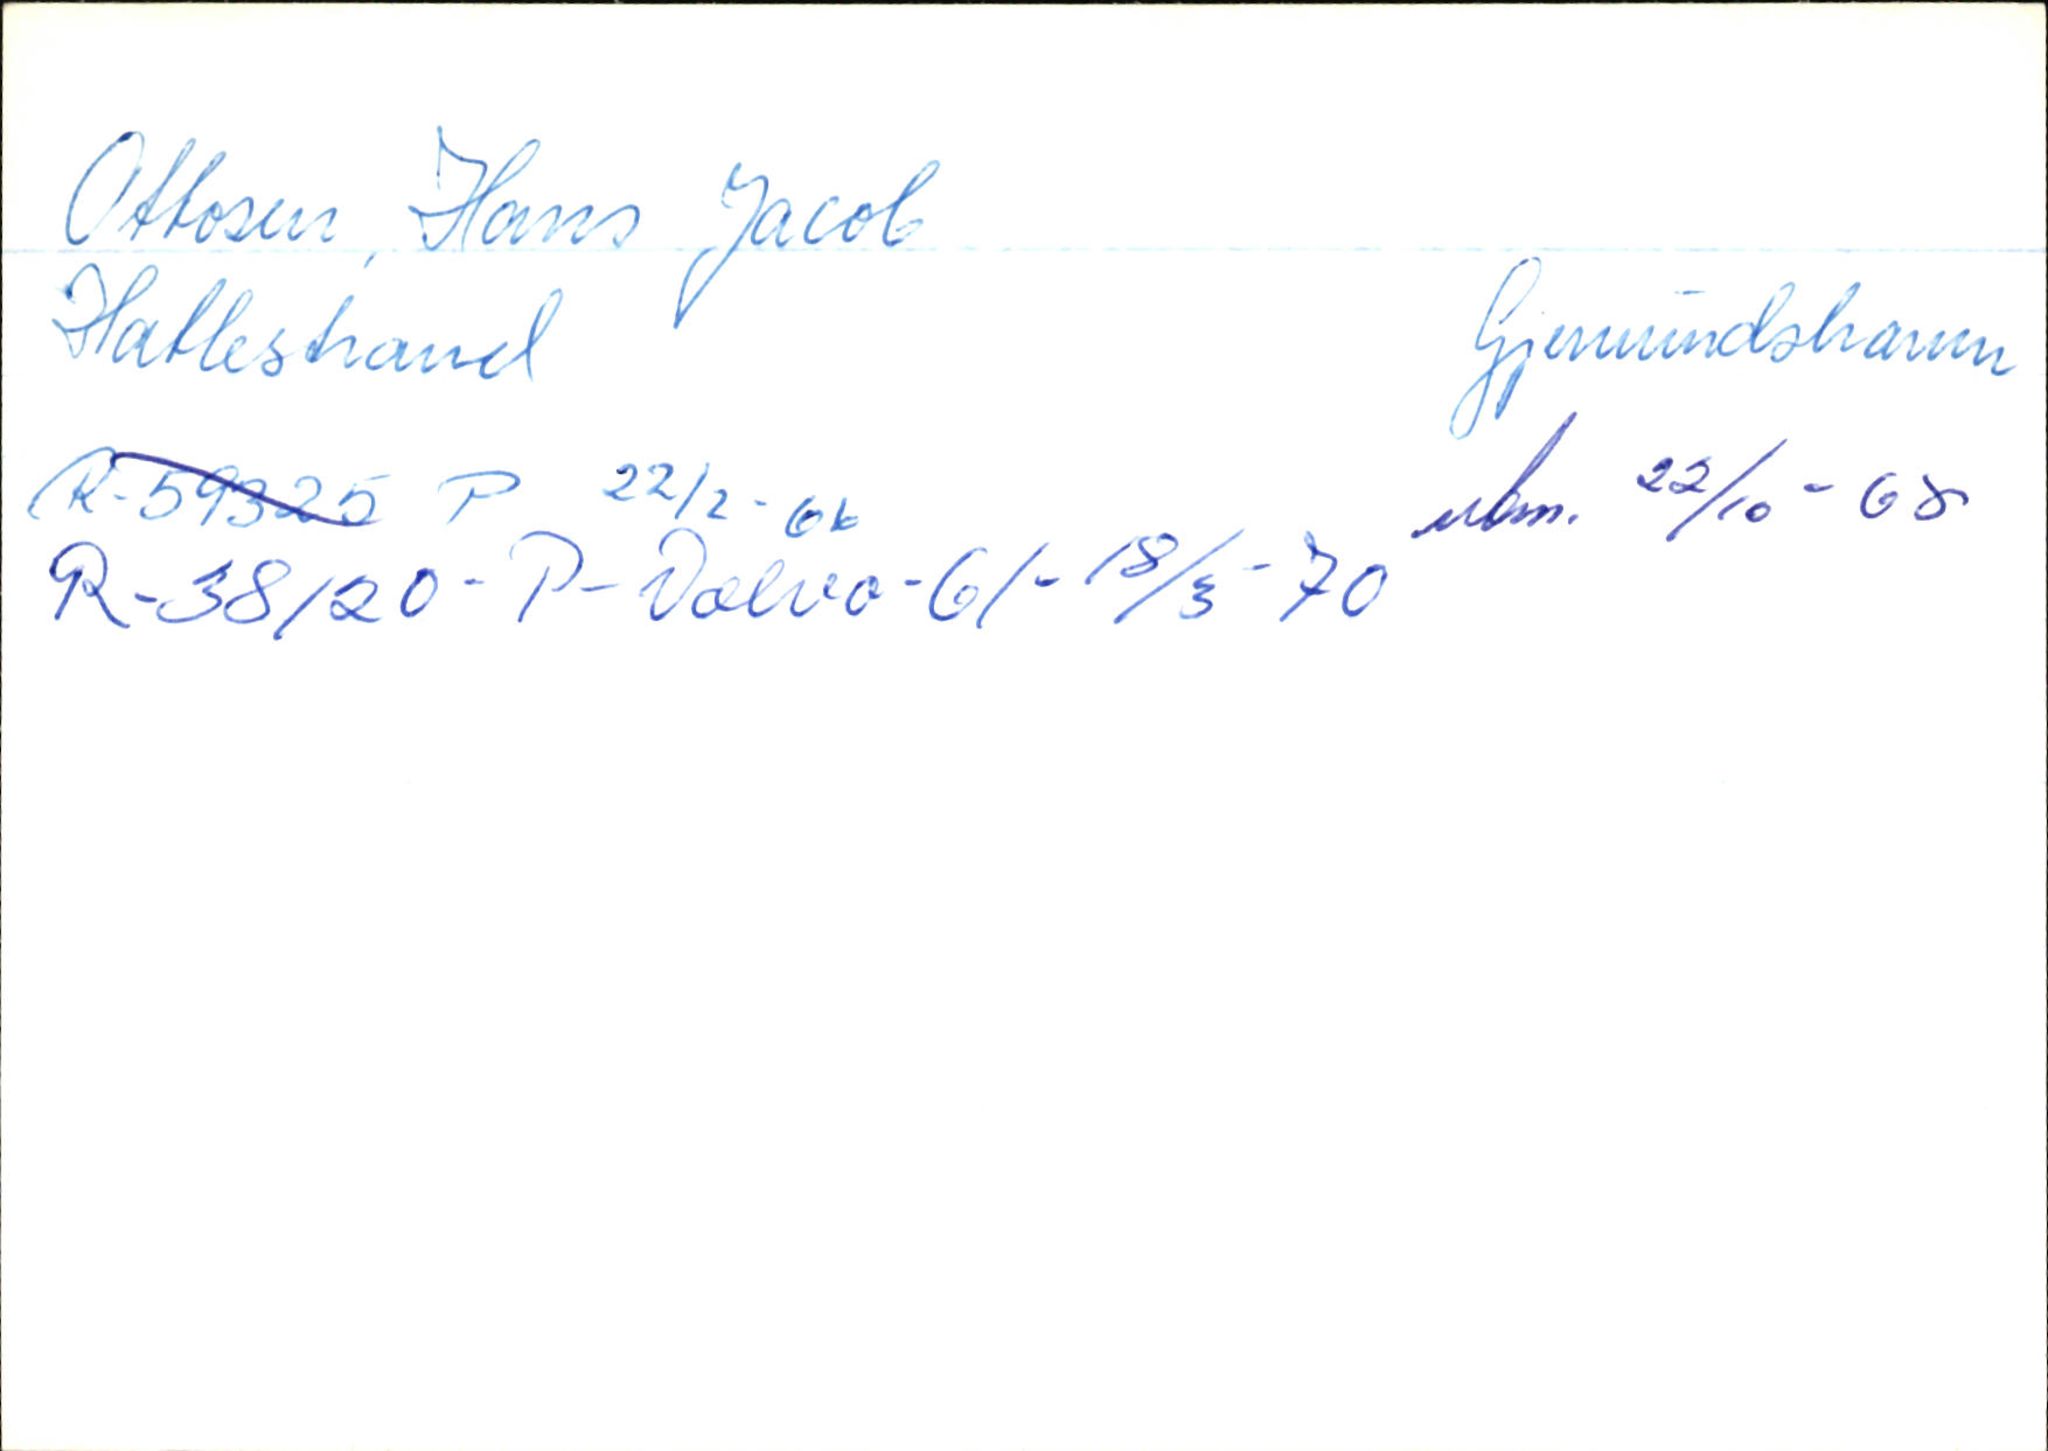 Ottosen, Hans Jacob
Hatlestrand Gjermundshamn
R-59325 P 22/2-66 ubm. 22/10-68
R-38120-P-Volvo-61-18/3-70